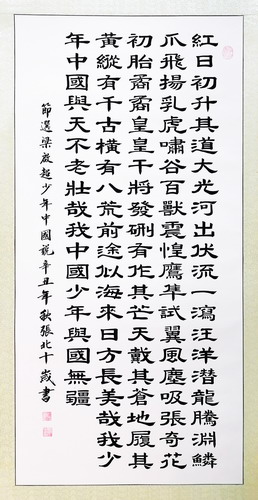 紅日初升其道大光河出伏流一瀉汪洋潛龍騰淵鱗
爪飛揚乳虎嘯谷百獸震惶鷹隼試翼風塵吸張奇花
初胎矞矞皇皇干將發硎有作其芒天戴其蒼地履其
黃縱有千古橫有八荒前途似海來日方長美哉我少
年中國與天不老壯哉我中國少年與國無疆
節選梁啟超少年中國說辛丑年秋張北十歲書